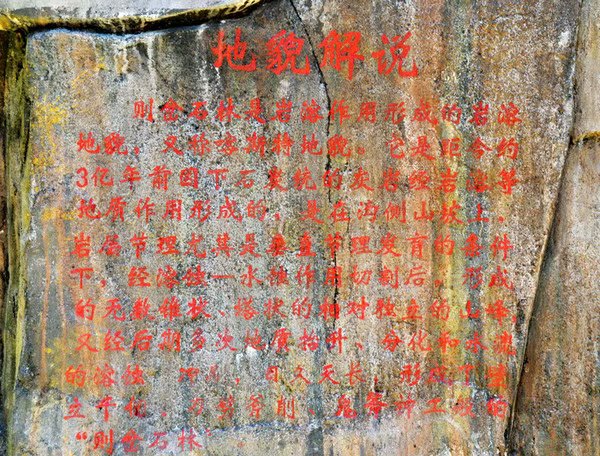 地貌解说
则岔石林是岩溶作用形成的岩溶
地貌，又称喀斯特地貌。它是距今约
3亿年前因下石炭统的灰岩经岩溶等
地质作用形成的，是在沟侧山坡上，
岩层节理尤其是垂直节理发育的条件
下，经溶蚀一水蚀作用切割后，形成
的无数锥状、塔状的相对独立的山峰，
又经后期多次地质抬升、分化和水流
的溶蚀，日久天长，形成了
立千仞，鬼斧神工般的
“则岔石林”。